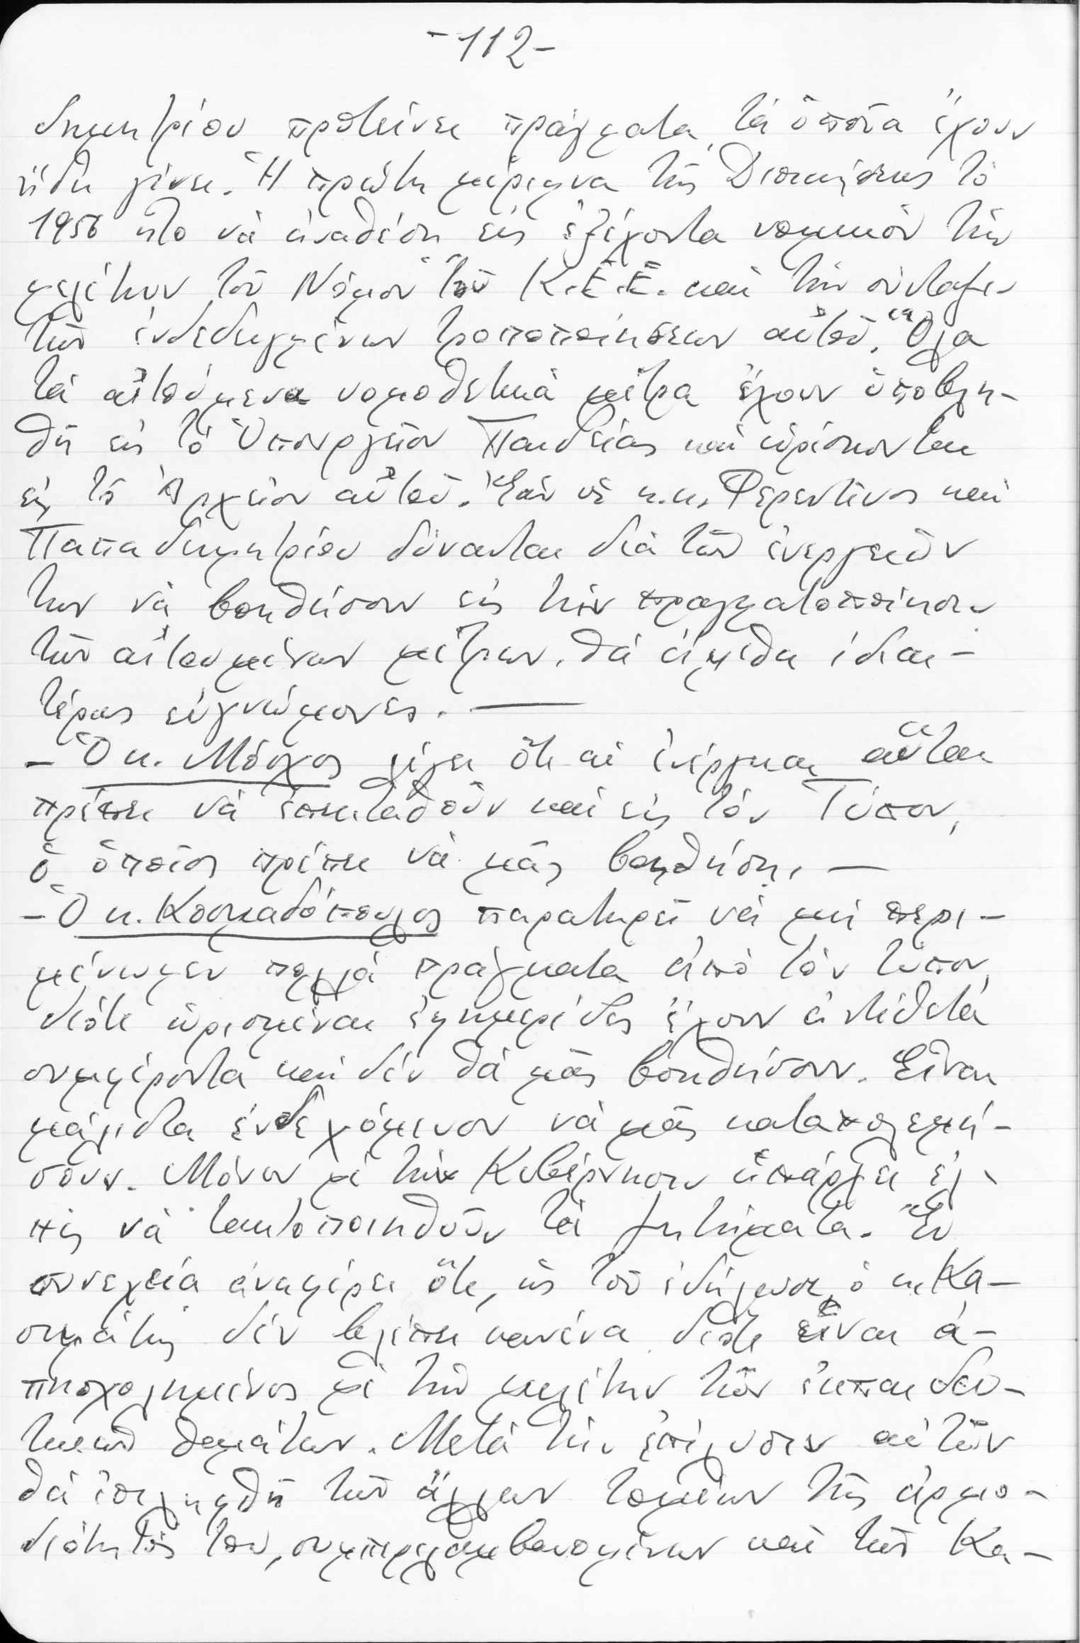 -112-
δημητρίου προτείνει πράγματα, τά ὁποῖα ἔχουν
ἤδη γίνει. Ἡ πρώτη μέριμνα τῆς Διοικήσεως τό
1956 ἦτο νὰ ἀναθέσῃ εἰς ἐξέχοντα νομικόν τήν
μελέτην τοῦ Νόμου τοῦ Κ.Ε.Ε. καί τήν σύνταξιν
τῶν ἐνδεδειγμένων τροποποιήσεων αὐτοῦ. Ὅλα
τά αἰτούμενα νομοθετικά μέτρα ἔχουν ὑποβλη-
θῆ εἰς τό Ὑπουργεῖον Παιδείας καί εὑρίσκονται
εἰς τό Ἀρχεῖον αὐτοῦ. Ἐάν οἱ κ.κ. Φερεντίνος καί
Παπαδημητρίου δύνανται διά τῶν ἐνεργειῶν
των νά βοηθήσουν εἰς τήν πραγματοποίησιν
τῶν αἰτουμένων μέτρων, θά εἴμεθα ἰδιαι-
τέρως εὐγνώμονες. —
- Ὁ κ. Μόσχος λέγει ὅτι αἱ ἐνέργειαι αὗται
πρέπει νά ἐπεκταθοῦν καί εἰς τόν Τύπον,
ὁ ὁποῖος πρέπει νά μᾶς βοηθήσῃ. —
- Ὁ κ. Κοσμαδόπουλος παρατηρεῖ νά μή περι-
μένωμεν πολλά πράγματα ἀπό τόν τύπον,
διότι ὡρισμέναι ἐφημερίδες ἔχουν ἀντίθετα
συμφέροντα καί δέν θά μᾶς βοηθήσουν. Εἶναι
μάλιστα ἐνδεχόμενον νά μᾶς καταπολεμή-
σουν. Μόνον μέ τήν Κυβέρνησιν ὑπάρχει ἐλ-
πίς νά τακτοποιηθοῦν τά ζητήματα. Ἐν
συνεχείᾳ ἀναφέρει ὅτι, ὡς τοῦ ἐδήλωσε, ὁ κ. Κα-
σιμάτης δέν βλέπει κανένα διότι εἶναι ἀ-
πησχολημένος μέ τήν μελέτην τῶν ἐκπαιδευ-
τικῶν θεμάτων. Μετά τήν ἐπίλυσιν αὐτῶν
θά ἐπιληφθῆ τῶν ἄλλων τομέων τῆς ἁρμο-
διότητός του, συμπεριλαμβανομένων καί τῶν Κα-